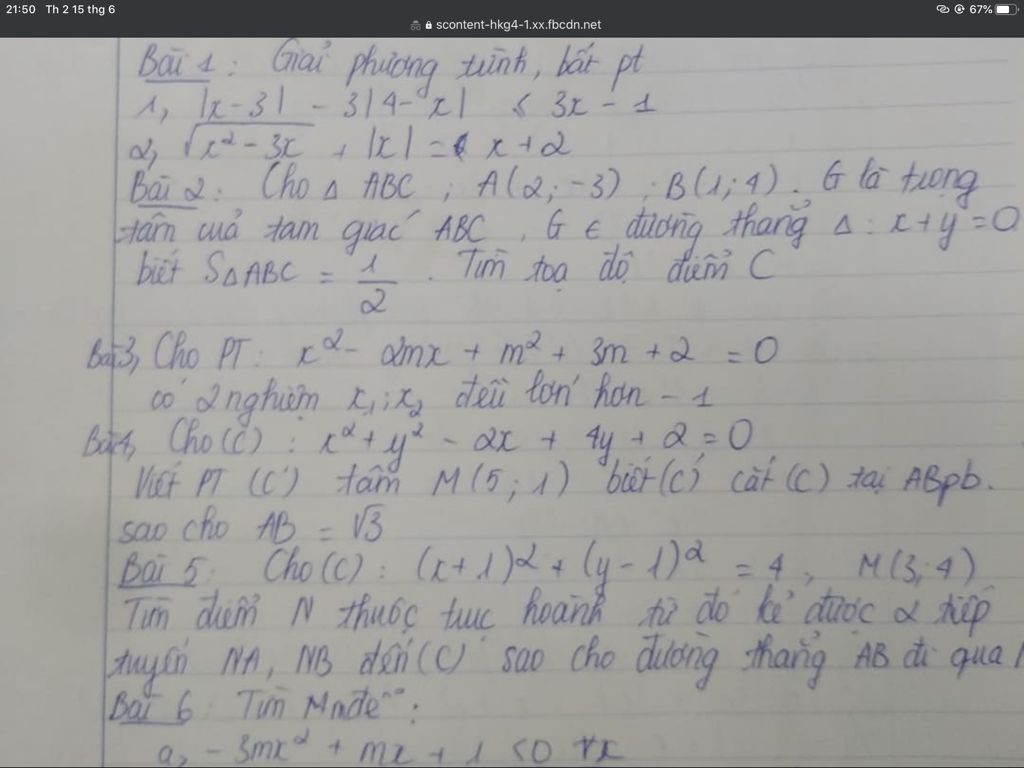 21:50 Th 2 15 thg 6
67%
scontent-hkg4-1.xx.fbcdn.net
Bài 1: Giải phương trình, bất pt
1, |x-3| - 3|4-x| ≤ 3x - 1
2, √(x² - 3x) + |x| = x + 2
Bài 2: Cho Δ ABC; A(2;-3); B(1;4). G là trọng
tâm của tam giác ABC, G ∈ đường thẳng Δ: x+y=0
biết SΔABC = 1/2. Tìm toạ độ điểm C
Bài 3, Cho PT: x² - 2mx + m² + 3m + 2 = 0
có 2 nghiệm x₁; x₂ đều lớn hơn -1
Bài 4, Cho (C): x² + y² - 2x + 4y + 2 = 0
Viết PT (C') tâm M(5;1) biết (C') cắt (C) tại AB pb.
sao cho AB = √3
Bài 5: Cho (C): (x+1)² + (y-1)² = 4, M(3;4)
Tìm điểm N thuộc trục hoành từ đó kẻ được 2 tiếp
tuyến NA, NB đến (C) sao cho đường thẳng AB đi qua
Bài 6: Tìm M để:
a, -3mx² + mx + 1 < 0 ∀x